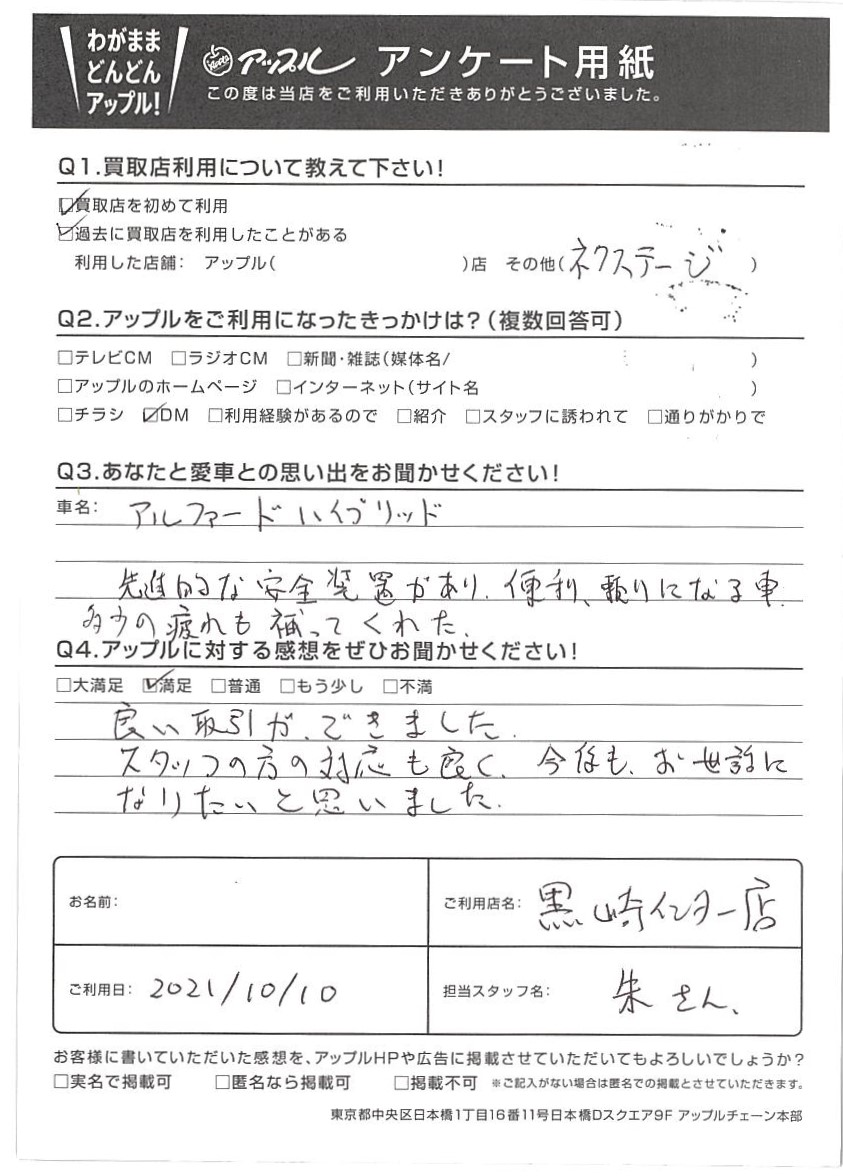 わがまま
どんどん
アップル!
アップル アンケート用紙
この度は当店をご利用いただきありがとうございました。
Q1.買取店利用について教えて下さい!
☑買取店を初めて利用
☑過去に買取店を利用したことがある
利用した店舗: アップル( )店 その他(ネクステージ)
Q2.アップルをご利用になったきっかけは?(複数回答可)
□テレビCM □ラジオCM □新聞・雑誌(媒体名/ )
□アップルのホームページ □インターネット(サイト名 )
□チラシ ☑DM □利用経験があるので □紹介 □スタッフに誘われて □通りがかりで
Q3.あなたと愛車との思い出をお聞かせください!
車名: アルファード ハイブリッド
先進的な安全装置があり、便利、頼りになる車。
多少の疲れも補ってくれた。
Q4.アップルに対する感想をぜひお聞かせください!
□大満足 ☑満足 □普通 □もう少し □不満
良い取引が、できました。
スタッフの方の対応も良く、今後も、お世話に
なりたいと思いました。
お名前:
ご利用店名: 黒崎インター店
ご利用日: 2021/10/10
担当スタッフ名: 朱さん、
お客様に書いていただいた感想を、アップルHPや広告に掲載させていただいてもよろしいでしょうか?
□実名で掲載可 □匿名なら掲載可 □掲載不可 ※ご記入がない場合は匿名での掲載とさせていただきます。
東京都中央区日本橋1丁目16番11号日本橋Dスクエア9F アップルチェーン本部